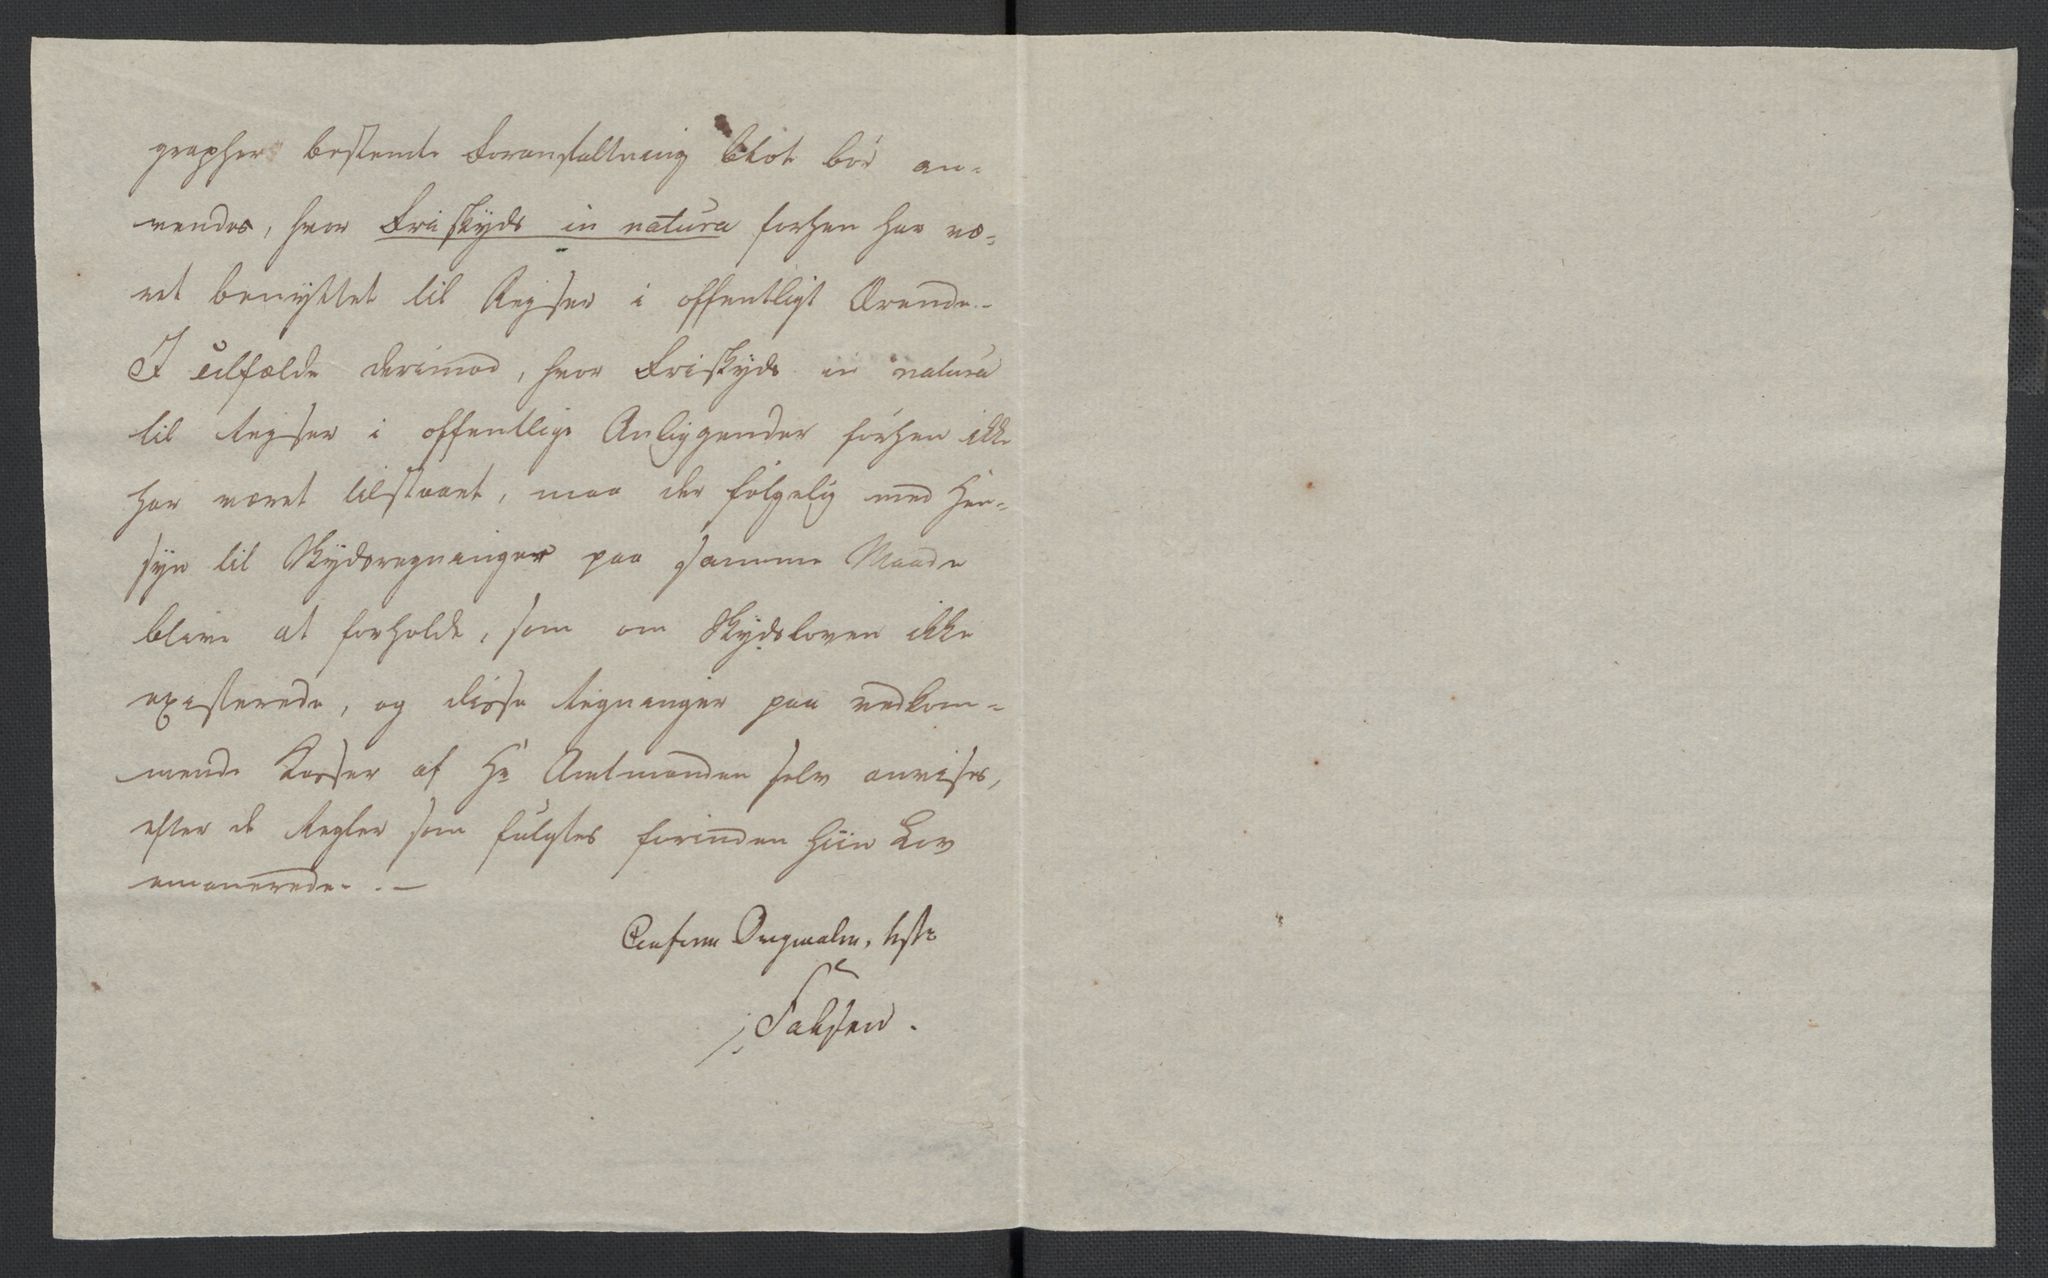 grapher bestemte Foranstaltning blot bör an-
vendes, hvor Friskyds in natura forhen har væ-
ret benyttet til Rejser i offentligt Ærende.-
I Tilfælde derimod, hvor Friskyds in natura
til Rejser i offentlige Anliggender forhen ikke
har været tilstaaet, maa der følgelig med Hen-
syn til Skydsregninger paa samme Maade
blive at forholde, som om Skydsloven ikke
existerede, og disse Regninger paa vedkom-
mende Kasser af Hr Amtmanden selv anvises,
efter de Regler som fulgtes forinden hiin Lov
emanerede. . —
Conform Originalen, teste
Falsen.